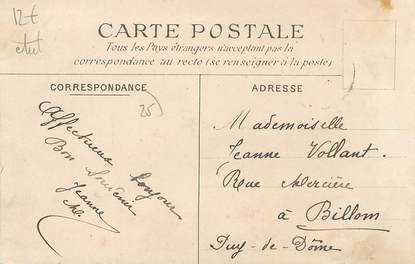 12€
CARTE POSTALE
Tous les Pays étrangers n'acceptant pas la
correspondance au recto (se renseigner à la poste)
CORRESPONDANCE
25
Affectueux bonjour
Bon Souvenir
Jeanne
ADRESSE
Mademoiselle
Jeanne Vollant.
Rue Mercière
à Billom
Puy-de-Dôme